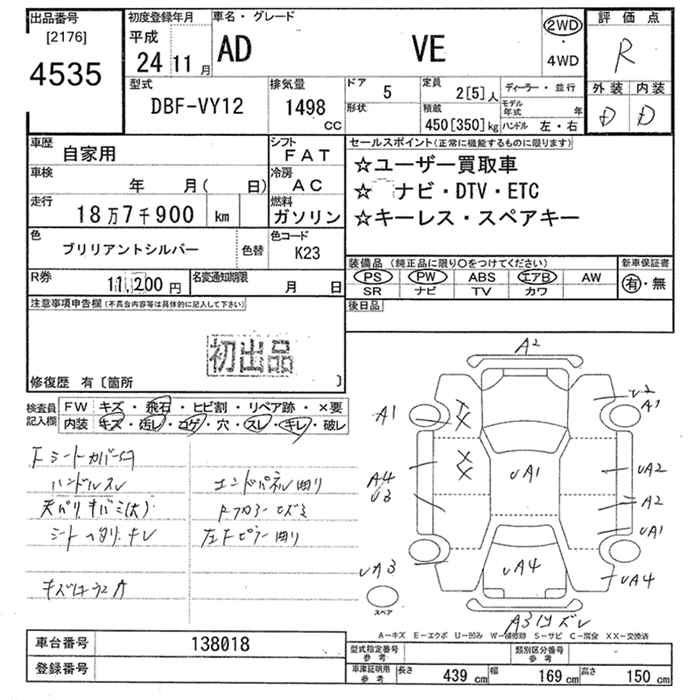 出品番号
[2176]
4535
初度登録年月
平成
24 11 月
車名・グレード
AD VE
2WD
・
4WD
評価点
R
外装 内装
D D
型式
DBF-VY12
排気量
1498
CC
ドア 5
形状
定員 2[5]人
積載 450[350]kg
ディーラー・並行
モデル年式 年
ハンドル 左・右
車歴
自家用
シフト
FAT
車検
年 月( 日)
冷房
AC
走行
18万7千900 km
燃料
ガソリン
色
ブリリアントシルバー
色替
色コード
K23
R券
11,200円
名変通知期限
月 日
セールスポイント(正常に機能するものに限ります)
☆ユーザー買取車
☆ ナビ・DTV・ETC
☆キーレス・スペアキー
装備品 (純正品に限り○をつけてください)
PS PW ABS エアB AW
SR ナビ TV カワ
新車保証書
有・無
後日品
注意事項申告欄(不具合内容等は具体的に記入して下さい)
初出品
修復歴 有〔箇所 〕
検査員
記入欄
FW キズ・飛石・ヒビ割・リペア跡・×要
内装 キズ・汚レ・コゲ・穴・スレ・キレ・破レ
Fシートカバー付
ハンドルスレ
シート ヘタリ・キレ
エンドパネル曲り
Fフロアーヒズミ
左Fピラー曲り
A2
A1
A1
A4
UA1
UA2
A2
UA1
UA3
UA4
UA4
スペア
A-キズ E-エクボ U-凹み W-補修跡 S-サビ C-腐食 XX-交換済
車台番号 138018
登録番号
型式指定番号
参考
類別区分番号
参考
車庫証明用
参考
長さ 439 cm 幅 169 cm 高さ 150 cm